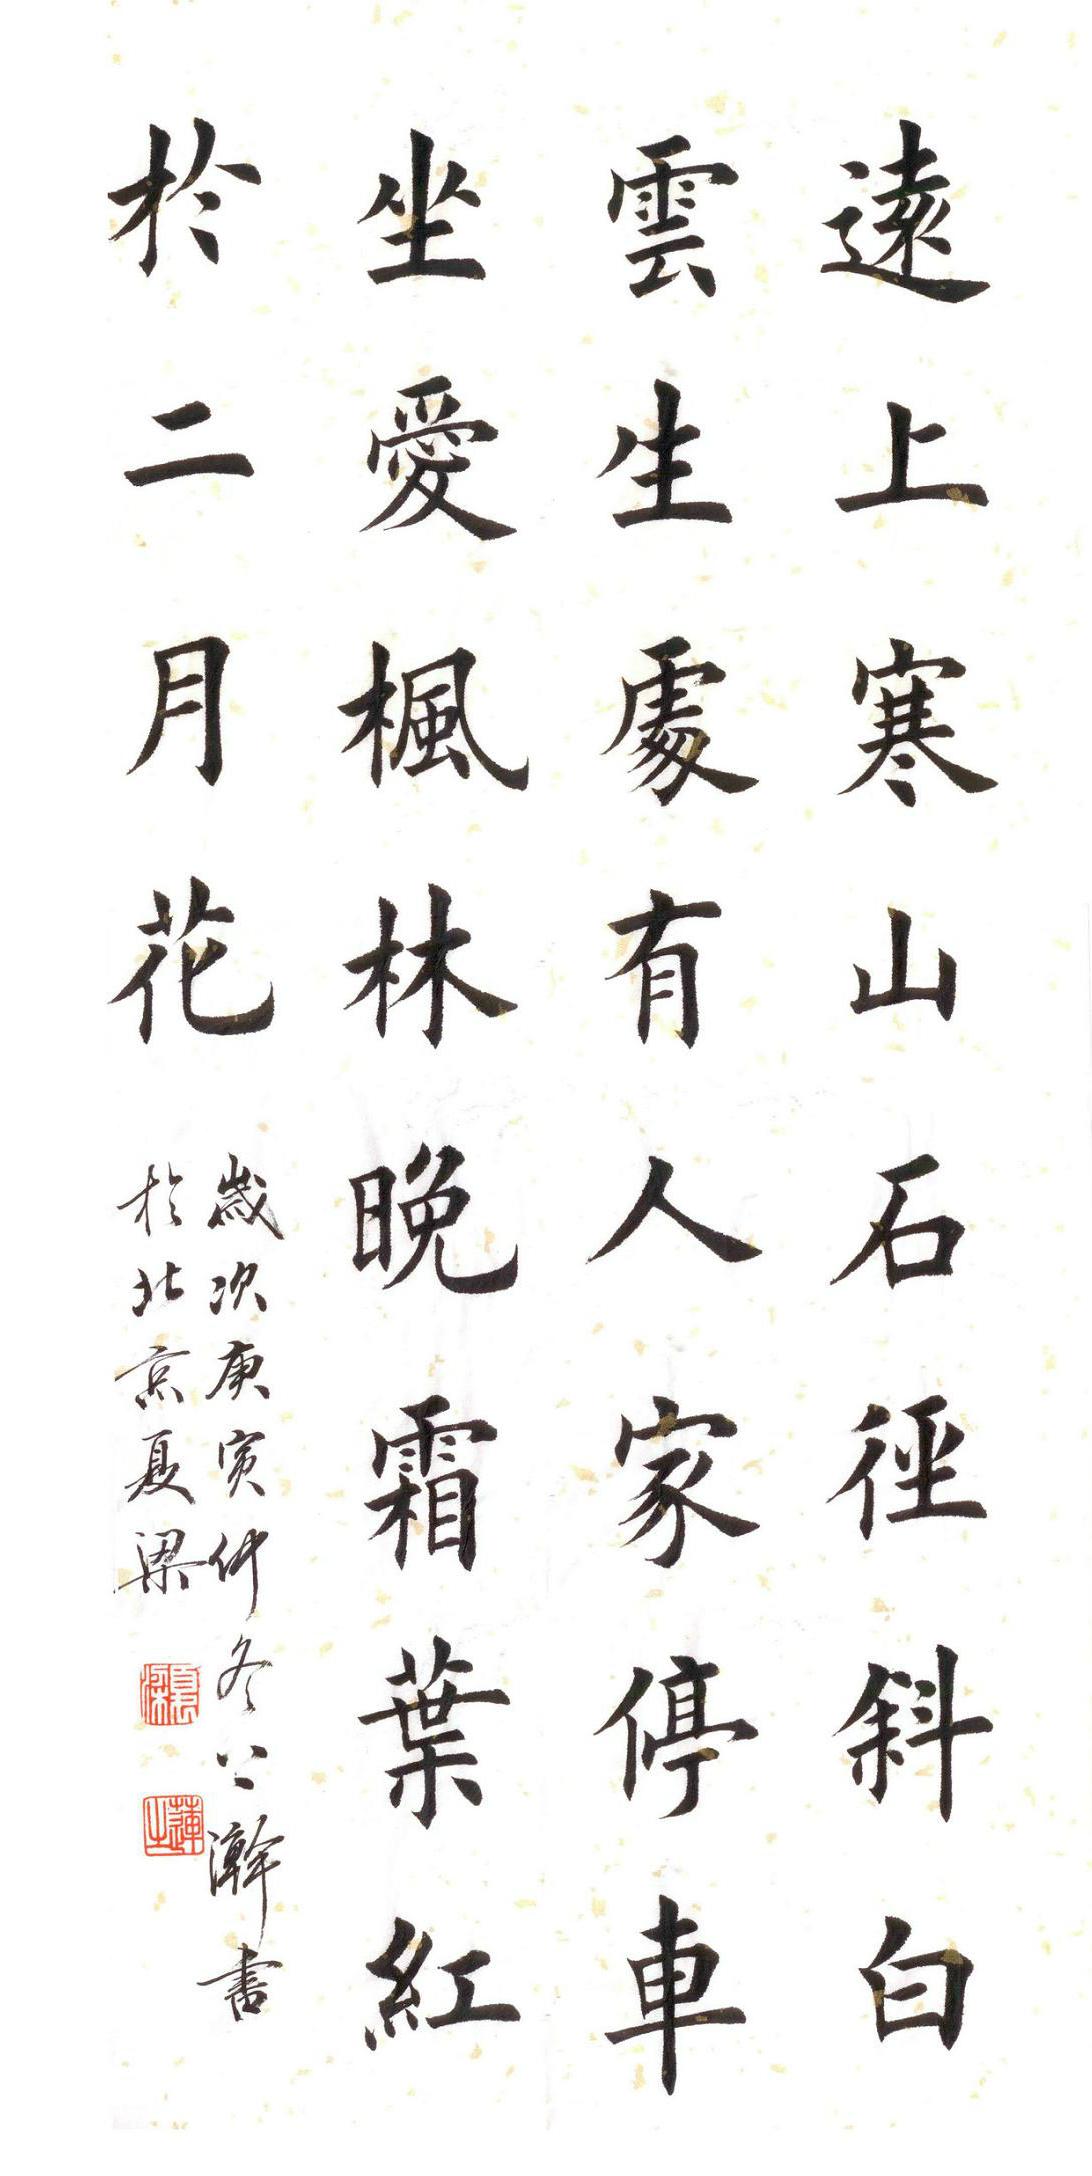 遠上寒山石徑斜白
雲生處有人家停車
坐愛楓林晚霜葉紅
於二月花
歲次庚寅仲冬上澣書
於北京夏梁
夏梁